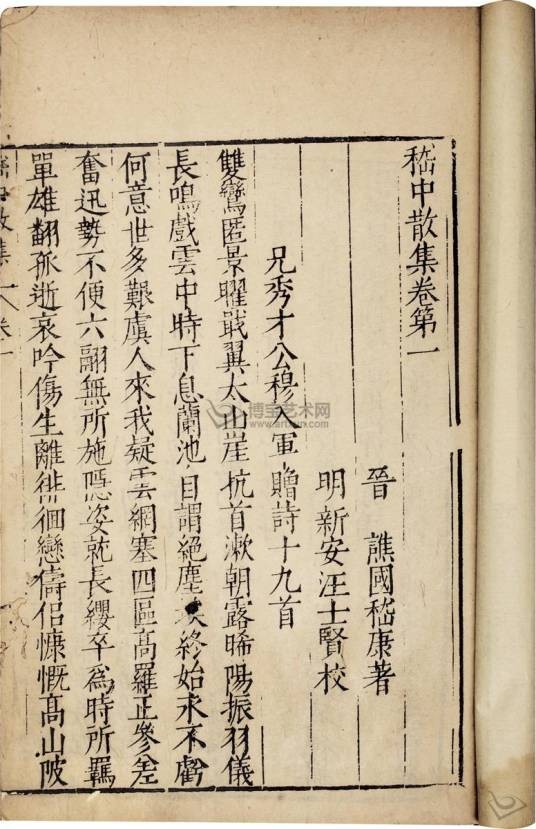 嵇中散集卷第一
晉 譙國嵇康著
明新安汪士賢校
兄秀才公穆入軍贈詩十九首
雙鸞匿景曜戢翼太山崖抗首漱朝露晞陽振羽儀
長鳴戲雲中時下息蘭池自謂絕塵終始永不虧
何意世多艱虞人來我疑雲網塞四區高羅正參差
奮迅勢不便六翮無所施隱姿就長纓卒爲時所羈
單雄翻孤逝哀吟傷生離徘徊戀儔侶慷慨高山陂
散集 卷一
博宝艺术网